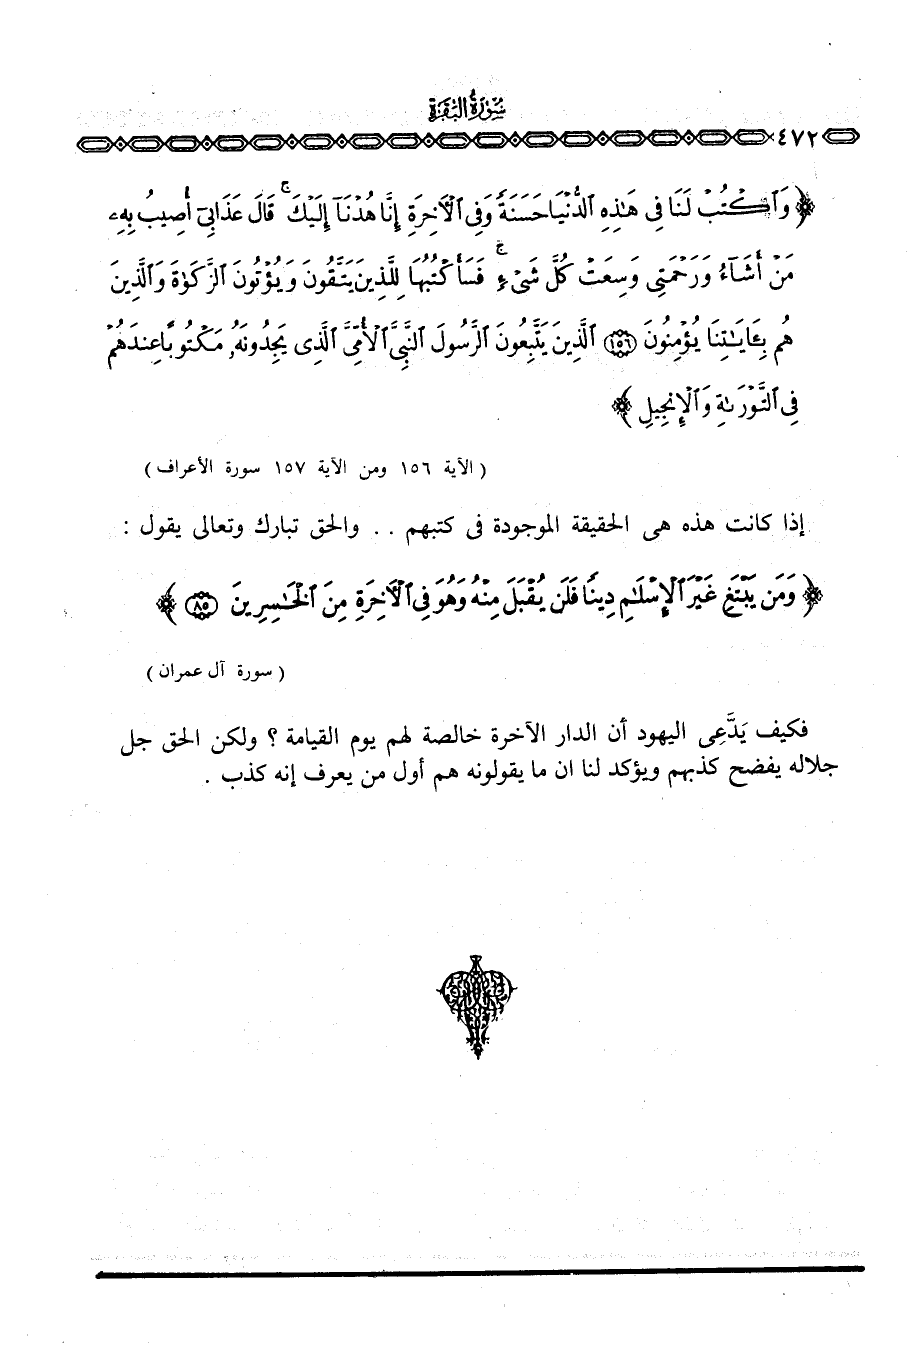 سُورَةُ البَقَرَةِ
٤٧٢
﴿ وَٱكْتُبْ لَنَا فِى هَٰذِهِ ٱلدُّنْيَا حَسَنَةً وَفِى ٱلْأٓخِرَةِ إِنَّا هُدْنَآ إِلَيْكَ ۚ قَالَ عَذَابِىٓ أُصِيبُ بِهِۦ
مَنْ أَشَآءُ وَرَحْمَتِى وَسِعَتْ كُلَّ شَىْءٍ ۚ فَسَأَكْتُبُهَا لِلَّذِينَ يَتَّقُونَ وَيُؤْتُونَ ٱلزَّكَوٰةَ وَٱلَّذِينَ
هُم بِـَٔايَٰتِنَا يُؤْمِنُونَ ﴿١٥٦﴾ ٱلَّذِينَ يَتَّبِعُونَ ٱلرَّسُولَ ٱلنَّبِىَّ ٱلْأُمِّىَّ ٱلَّذِى يَجِدُونَهُۥ مَكْتُوبًا عِندَهُمْ
فِى ٱلتَّوْرَىٰةِ وَٱلْإِنجِيلِ ﴾
( الآية ١٥٦ ومن الآية ١٥٧ سورة الأعراف )
إذا كانت هذه هى الحقيقة الموجودة فى كتبهم . . والحق تبارك وتعالى يقول :
﴿ وَمَن يَبْتَغِ غَيْرَ ٱلْإِسْلَٰمِ دِينًا فَلَن يُقْبَلَ مِنْهُ وَهُوَ فِى ٱلْأٓخِرَةِ مِنَ ٱلْخَٰسِرِينَ ﴿٨٥﴾ ﴾
( سورة آل عمران )
فكيف يَدَّعِى اليهود أن الدار الآخرة خالصة لهم يوم القيامة ؟ ولكن الحق جل
جلاله يفضح كذبهم ويؤكد لنا ان ما يقولونه هم أول من يعرف إنه كذب .